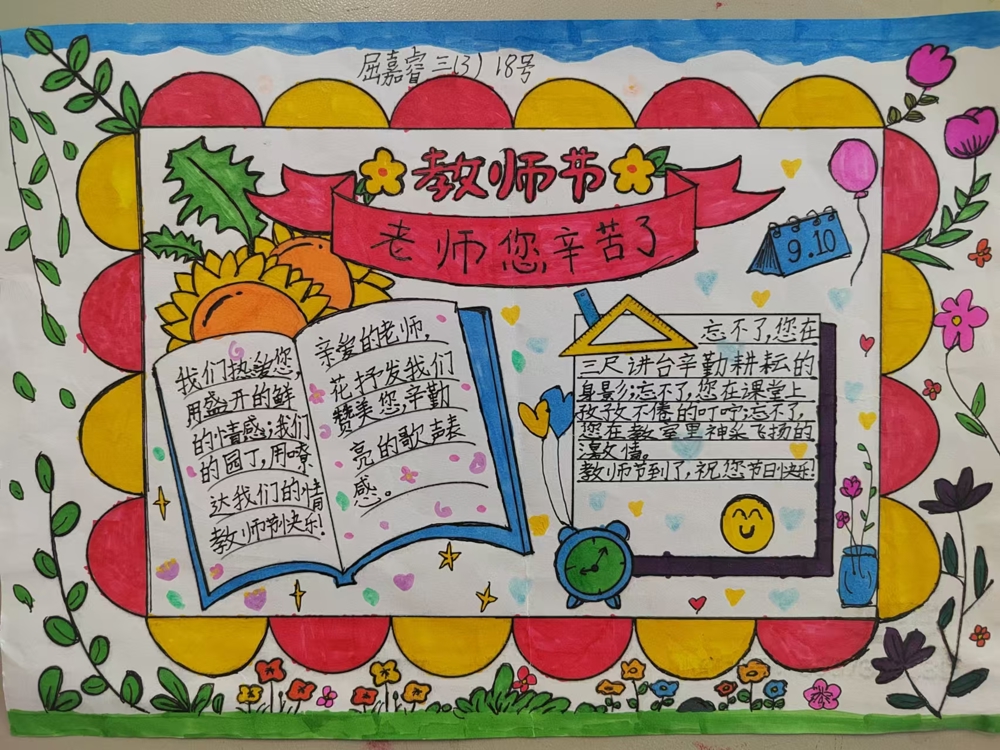 屈嘉睿 三(3) 18号
教师节
老师您辛苦了
9.10
我们热爱您,
用盛开的鲜
的情感;我们
的园丁,用嘹
达我们的情
教师节快乐!
亲爱的老师,
花抒发我们
赞美您,辛勤
亮的歌声表
感。
忘不了,您在
三尺讲台辛勤耕耘的
身影;忘不了,您在课堂上
孜孜不倦的叮咛;忘不了,
您在教室里神采飞扬的
激情。
教师节到了,祝您节日快乐!